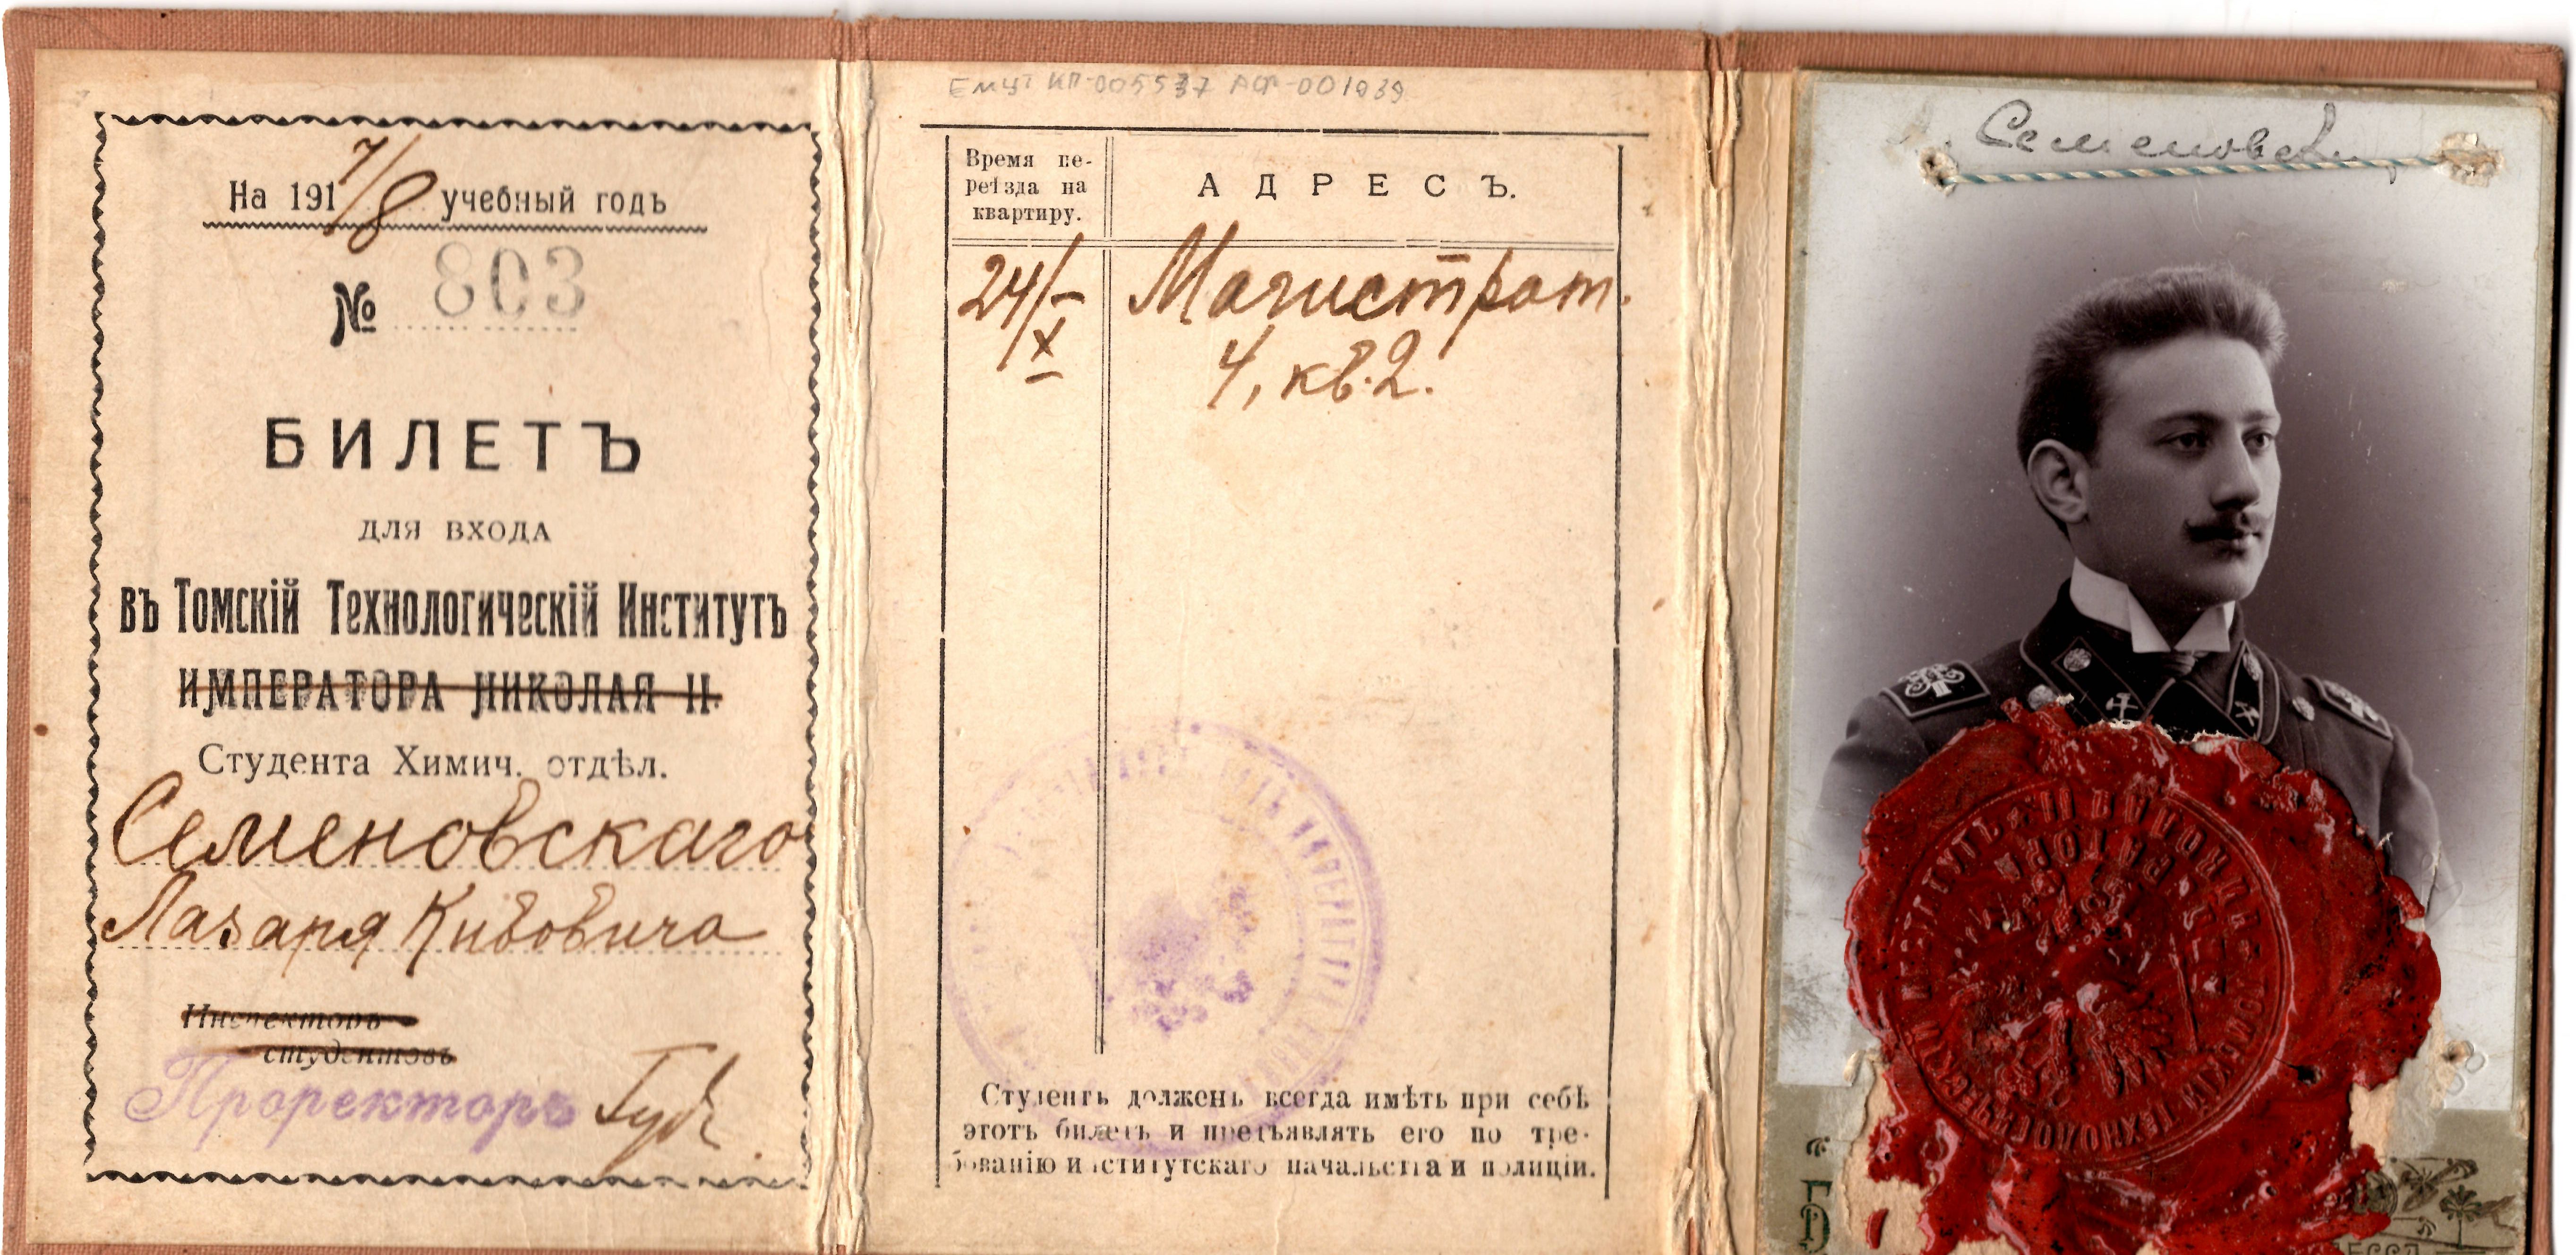 На 1917/8 учебный годъ
№ 803
БИЛЕТЪ
для входа
въ Томскій Технологическій Институтъ
ИМПЕРАТОРА НИКОЛАЯ II
Студента Химич. отдѣл.
Семеновскаго
Лазаря Кивовича
Инспекторъ
студентовъ
Проректоръ
ЕМЦТ КП-005537 АФ-001939
Время пе-
реѣзда на
квартиру.
АДРЕСЪ.
24/X Магистрат.
4, кв. 2.
Студентъ долженъ всегда имѣть при себѣ
этотъ билетъ и предъявлять его по тре-
бованію институтскаго начальства и полиціи.
Семеновск